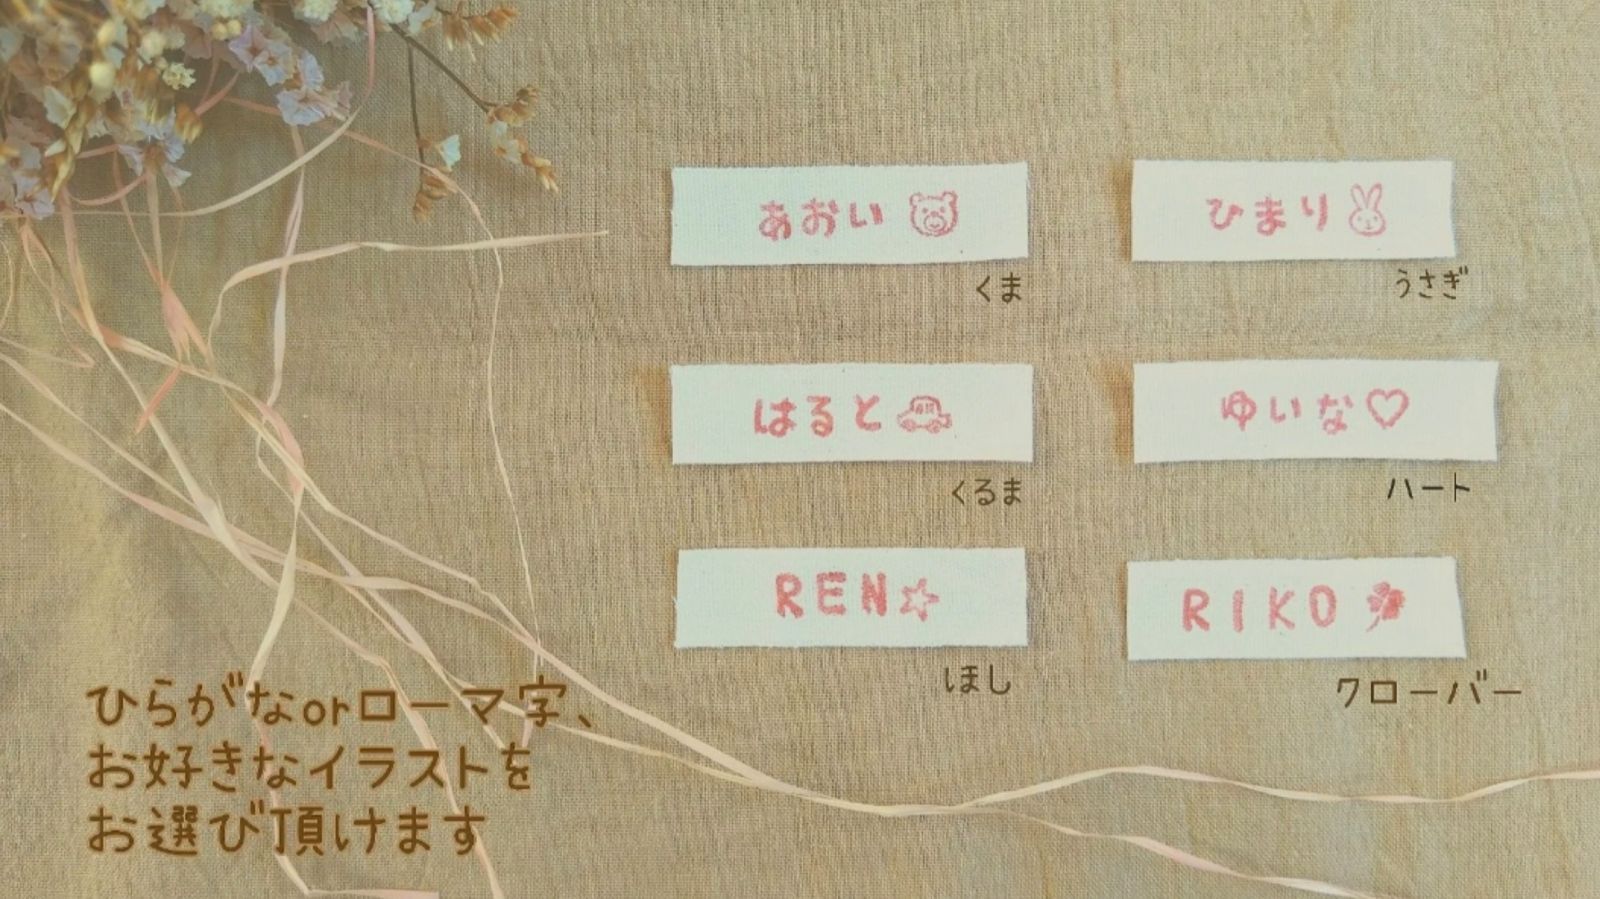 あおい
くま
ひまり
うさぎ
はると
くるま
ゆいな
ハート
REN
ほし
RIKO
クローバー
ひらがなorローマ字、
お好きなイラストを
お選び頂けます